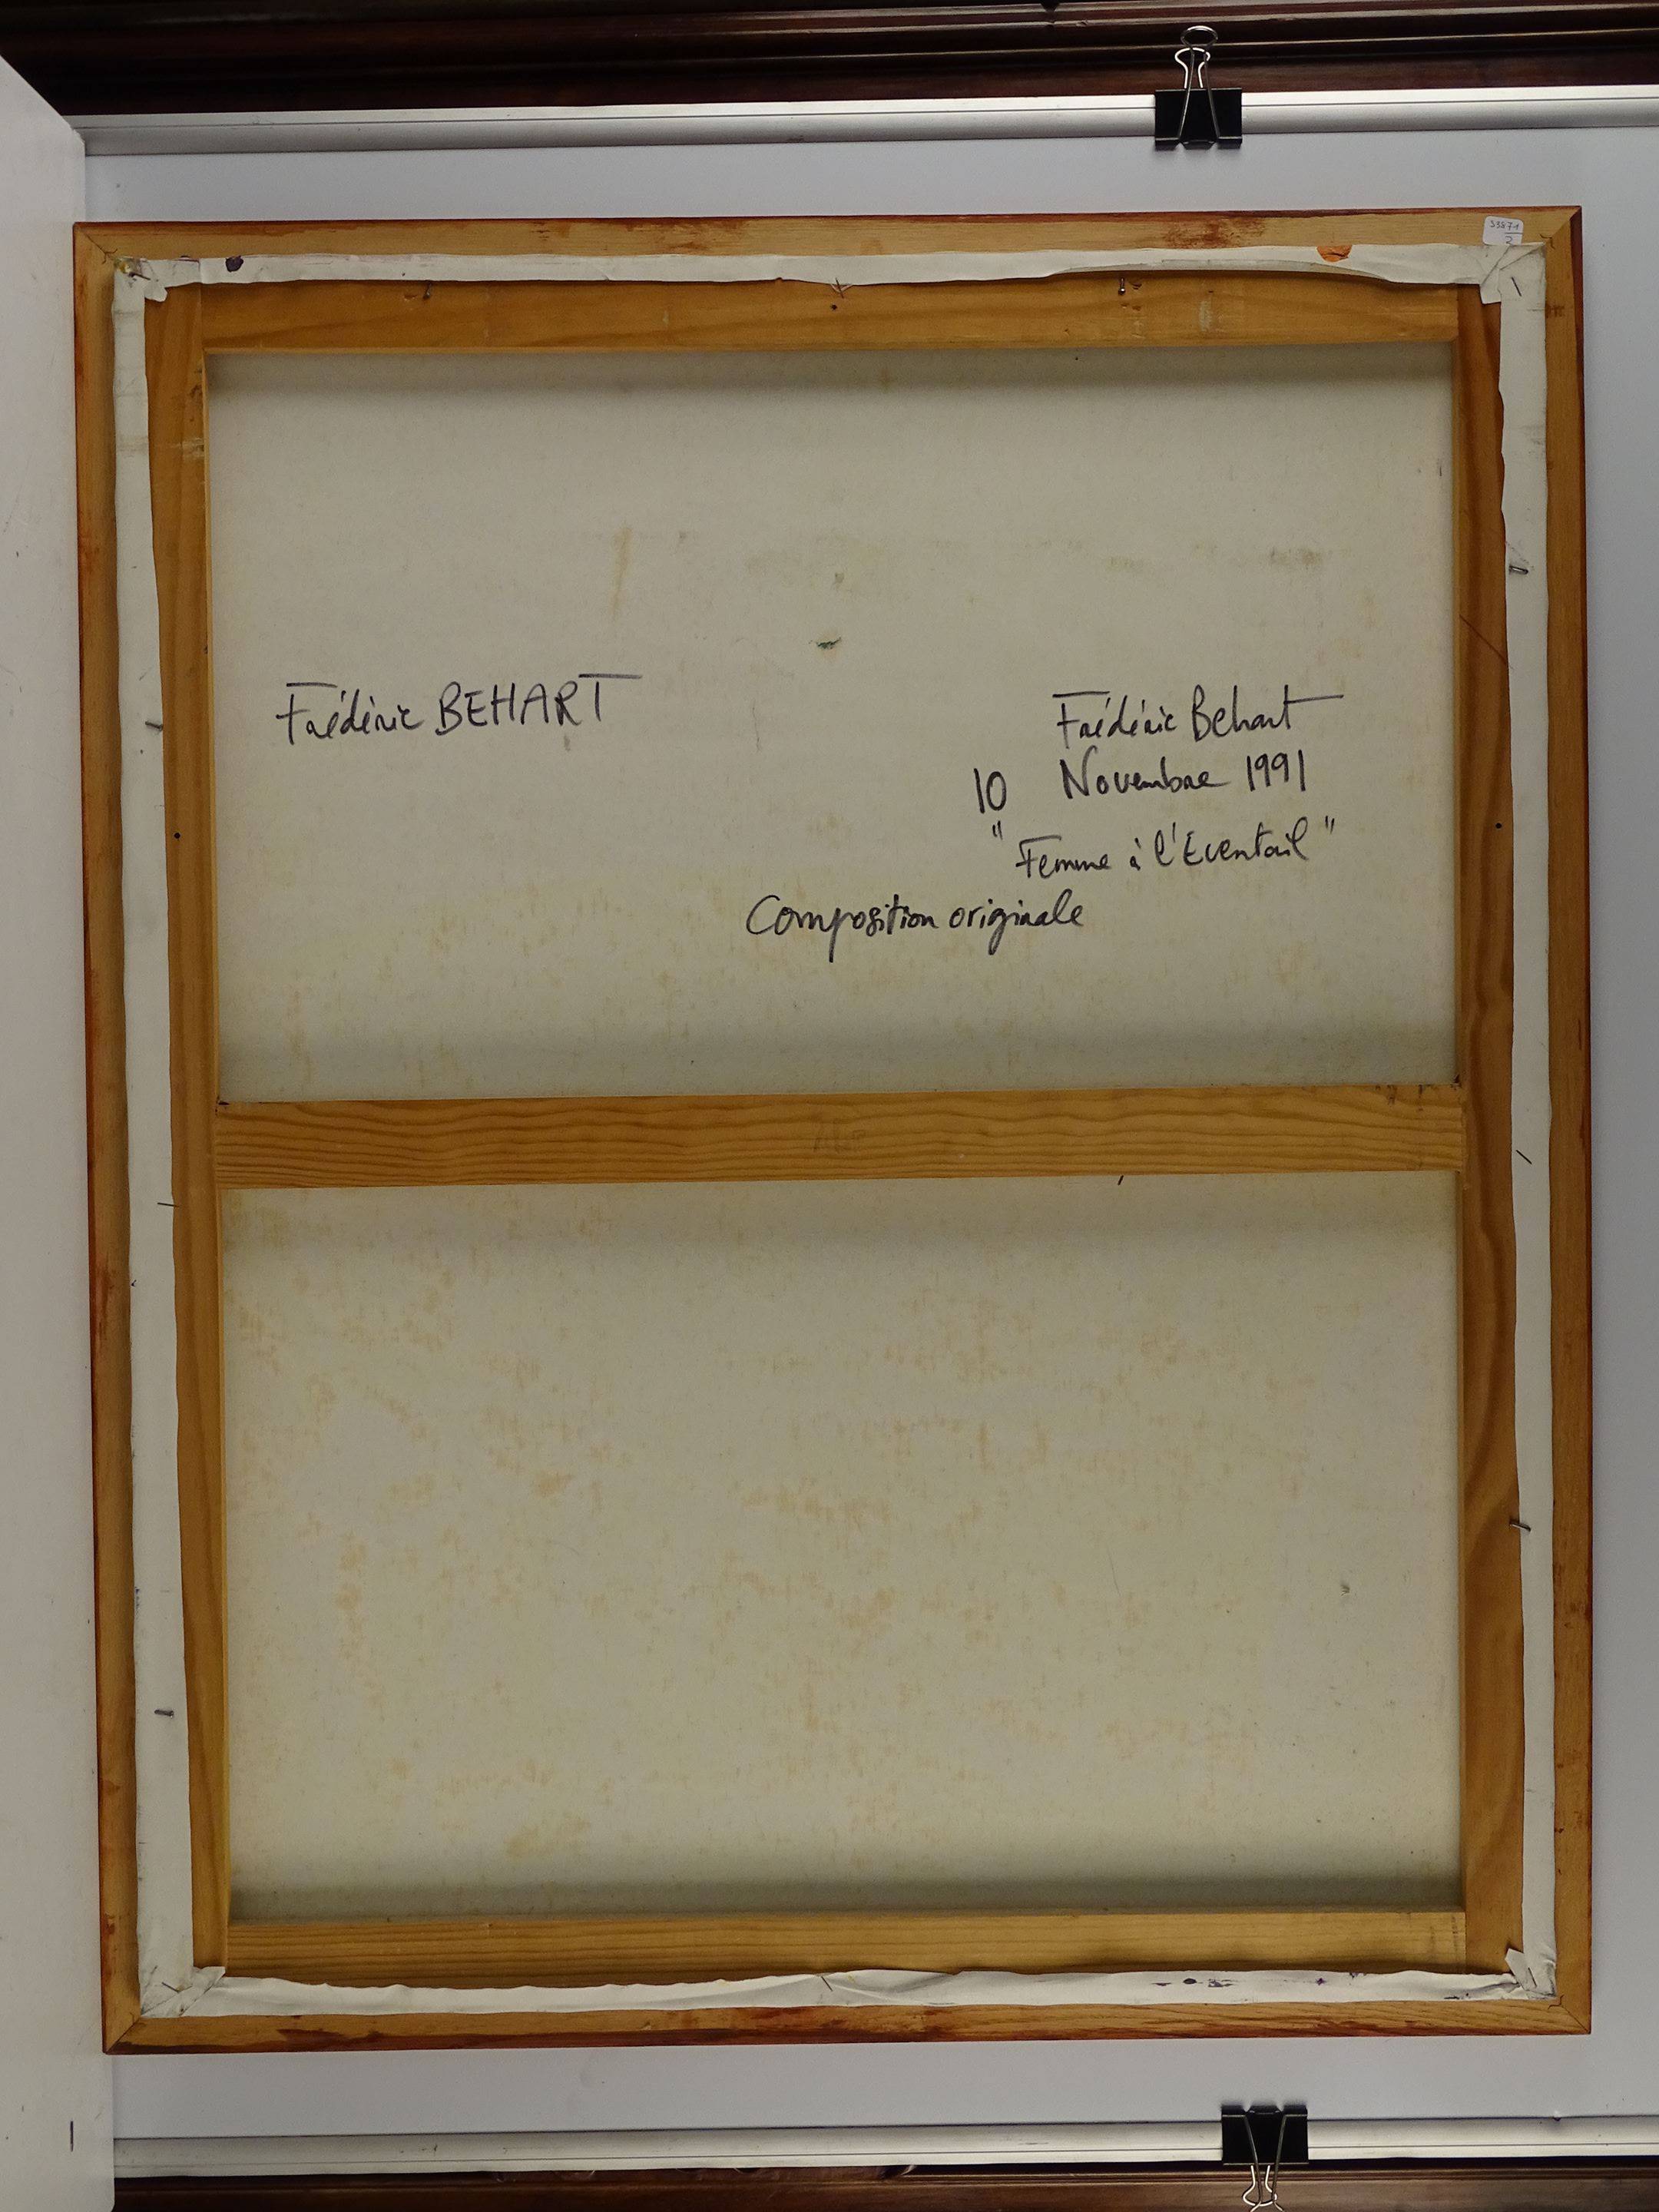 Frédéric BEHART
Frédéric Behart
10 Novembre 1991
"Femme à l'Eventail"
Composition originale